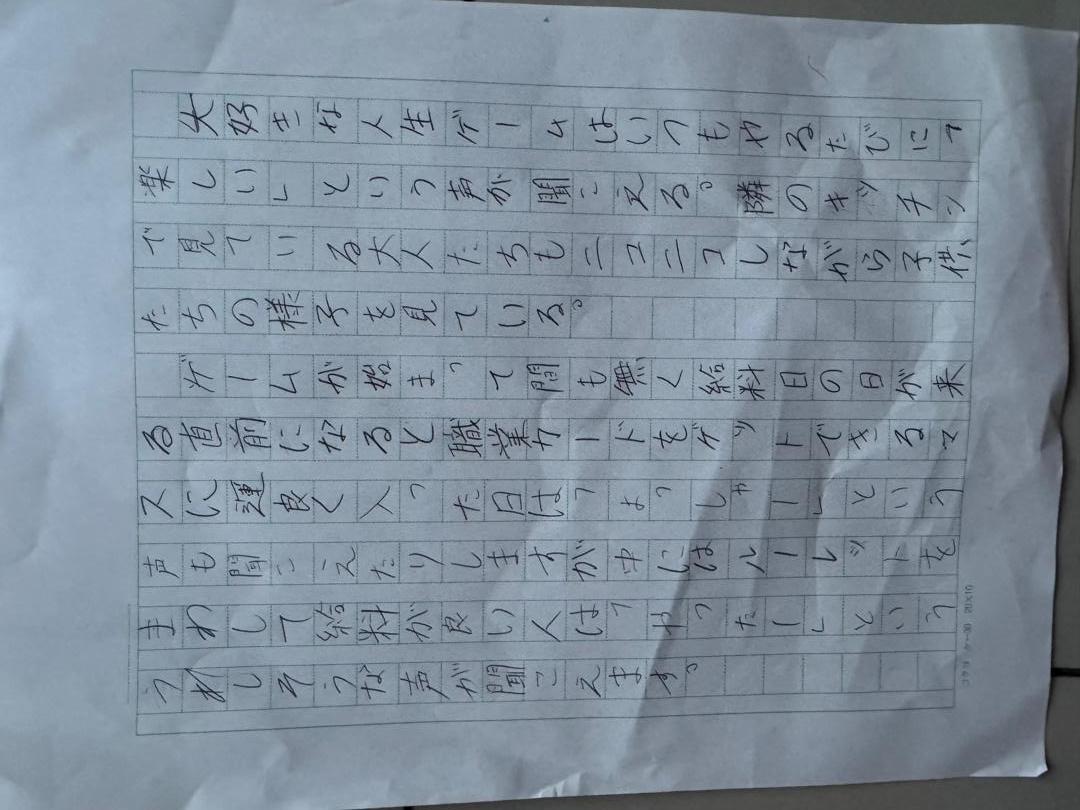 大好きな人生ゲームはいつもやるたびに「
楽しい」という声が聞こえる。隣のキッチン
で見ている大人たちもニコニコしながら子供
たちの様子を見ている。
ゲームが始まって間も無く給料日の日が来
る直前になると職業カードをゲットできるマ
スに運良く入った日は「よっしゃー」という
声も聞こえたりしますが中にはルーレットを
まわして給料が良い人は「やったー」という
うれしそうな声が聞こえます。